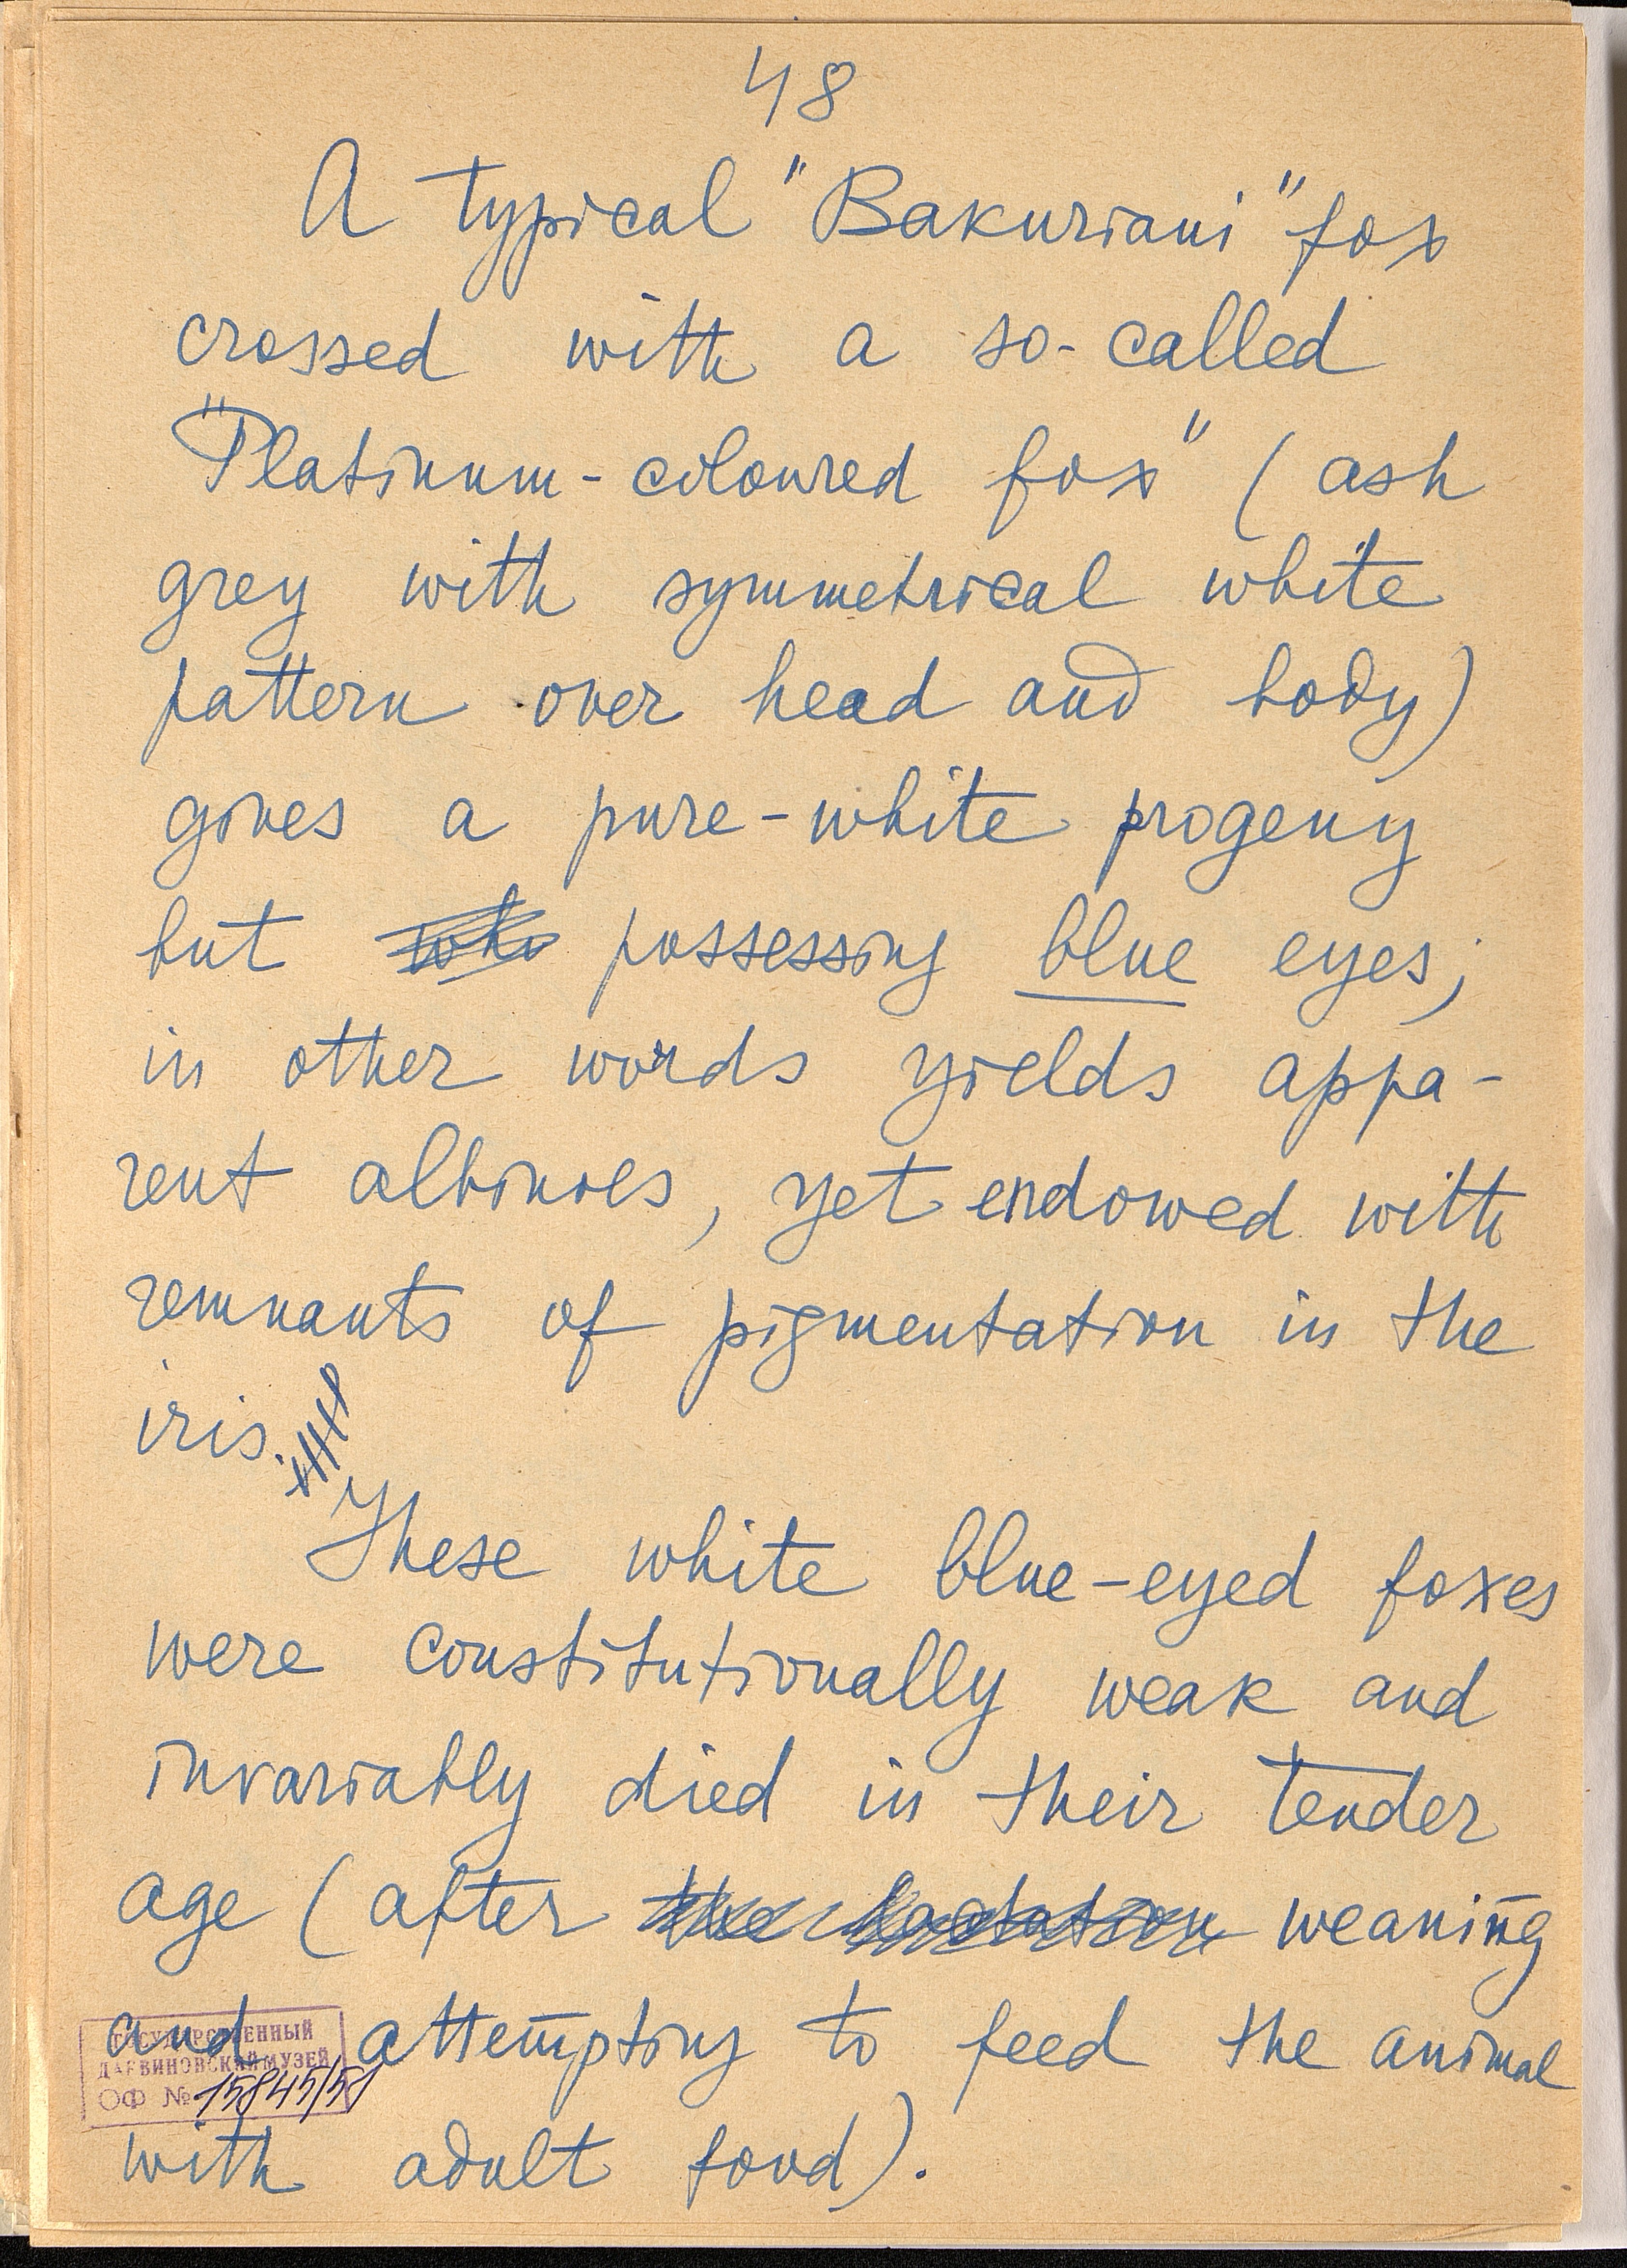 48
A typical "Bakuriani" fox
crossed with a so-called
"Platinum-coloured fox" (ash
grey with symmetrical white
pattern over head and body)
gives a pure-white progeny
but who possessing blue eyes;
in other words yields appa-
rent albinoes, yet endowed with
remnants of pigmentation in the
iris.
These white blue-eyed foxes
were constitutionally weak and
invariably died in their tender
age (after the lactation weaning
and attempting to feed the animal
with adult food).
ГОСУДАРСТВЕННЫЙ
ДАРВИНОВСКИЙ МУЗЕЙ
ОФ № 15845/51